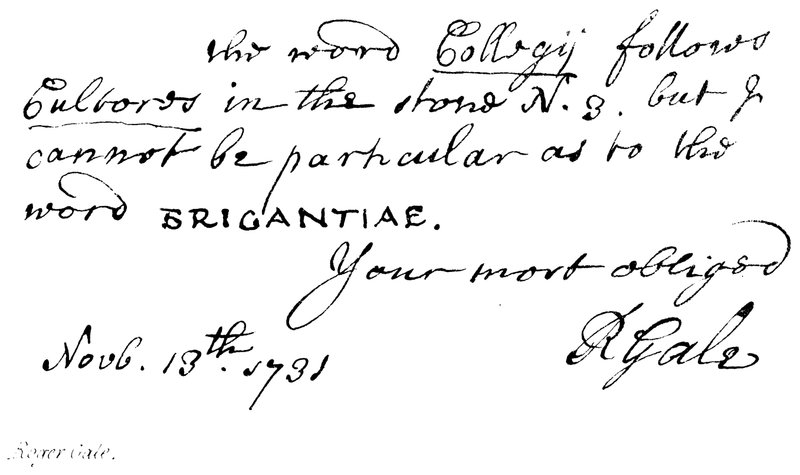 the word Collegij follows
Cultores in the stone N. 3. but I
cannot be particular as to the
word BRIGANTIAE.
Your most obliged
R Gale
Novb. 13th. 1731
Roger Gale.